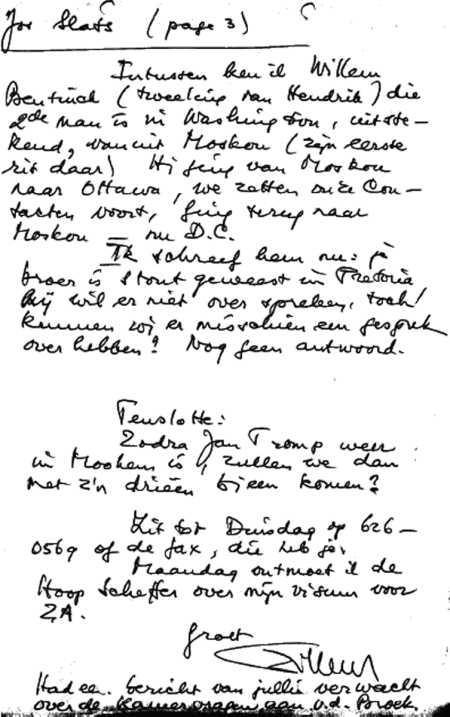 Jos Slats (page 3)
Intussen ken ik Willem
Bentinck (tweeling van Hendrik) die
2de man is in Washington, uitste-
kend, vanuit Moskou (zijn eerste
rit daar) Hij ging van Moskou
naar Ottawa, we zetten onze Con-
tacten voort, ging terug naar
Moskou = nu D.C.
Ik schreef hem nu: je
broer is stout geweest in Pretoria
hij wil er niet over spreken, toch!
kunnen wij er misschien een gesprek
over hebben? Nog geen antwoord.
Tenslotte:
Zodra Jan Tromp weer
in Mookum is, zullen we dan
met z'n drieën bijeen komen?
Zit tot Dinsdag op 626-
0569 of de fax, die heb je.
Maandag ontmoet ik de
Hoop Scheffer over mijn visum voor
Z.A.
groet
Willem
Had een bericht van jullie verwacht
over de Kamervragen aan v.d. Broek.